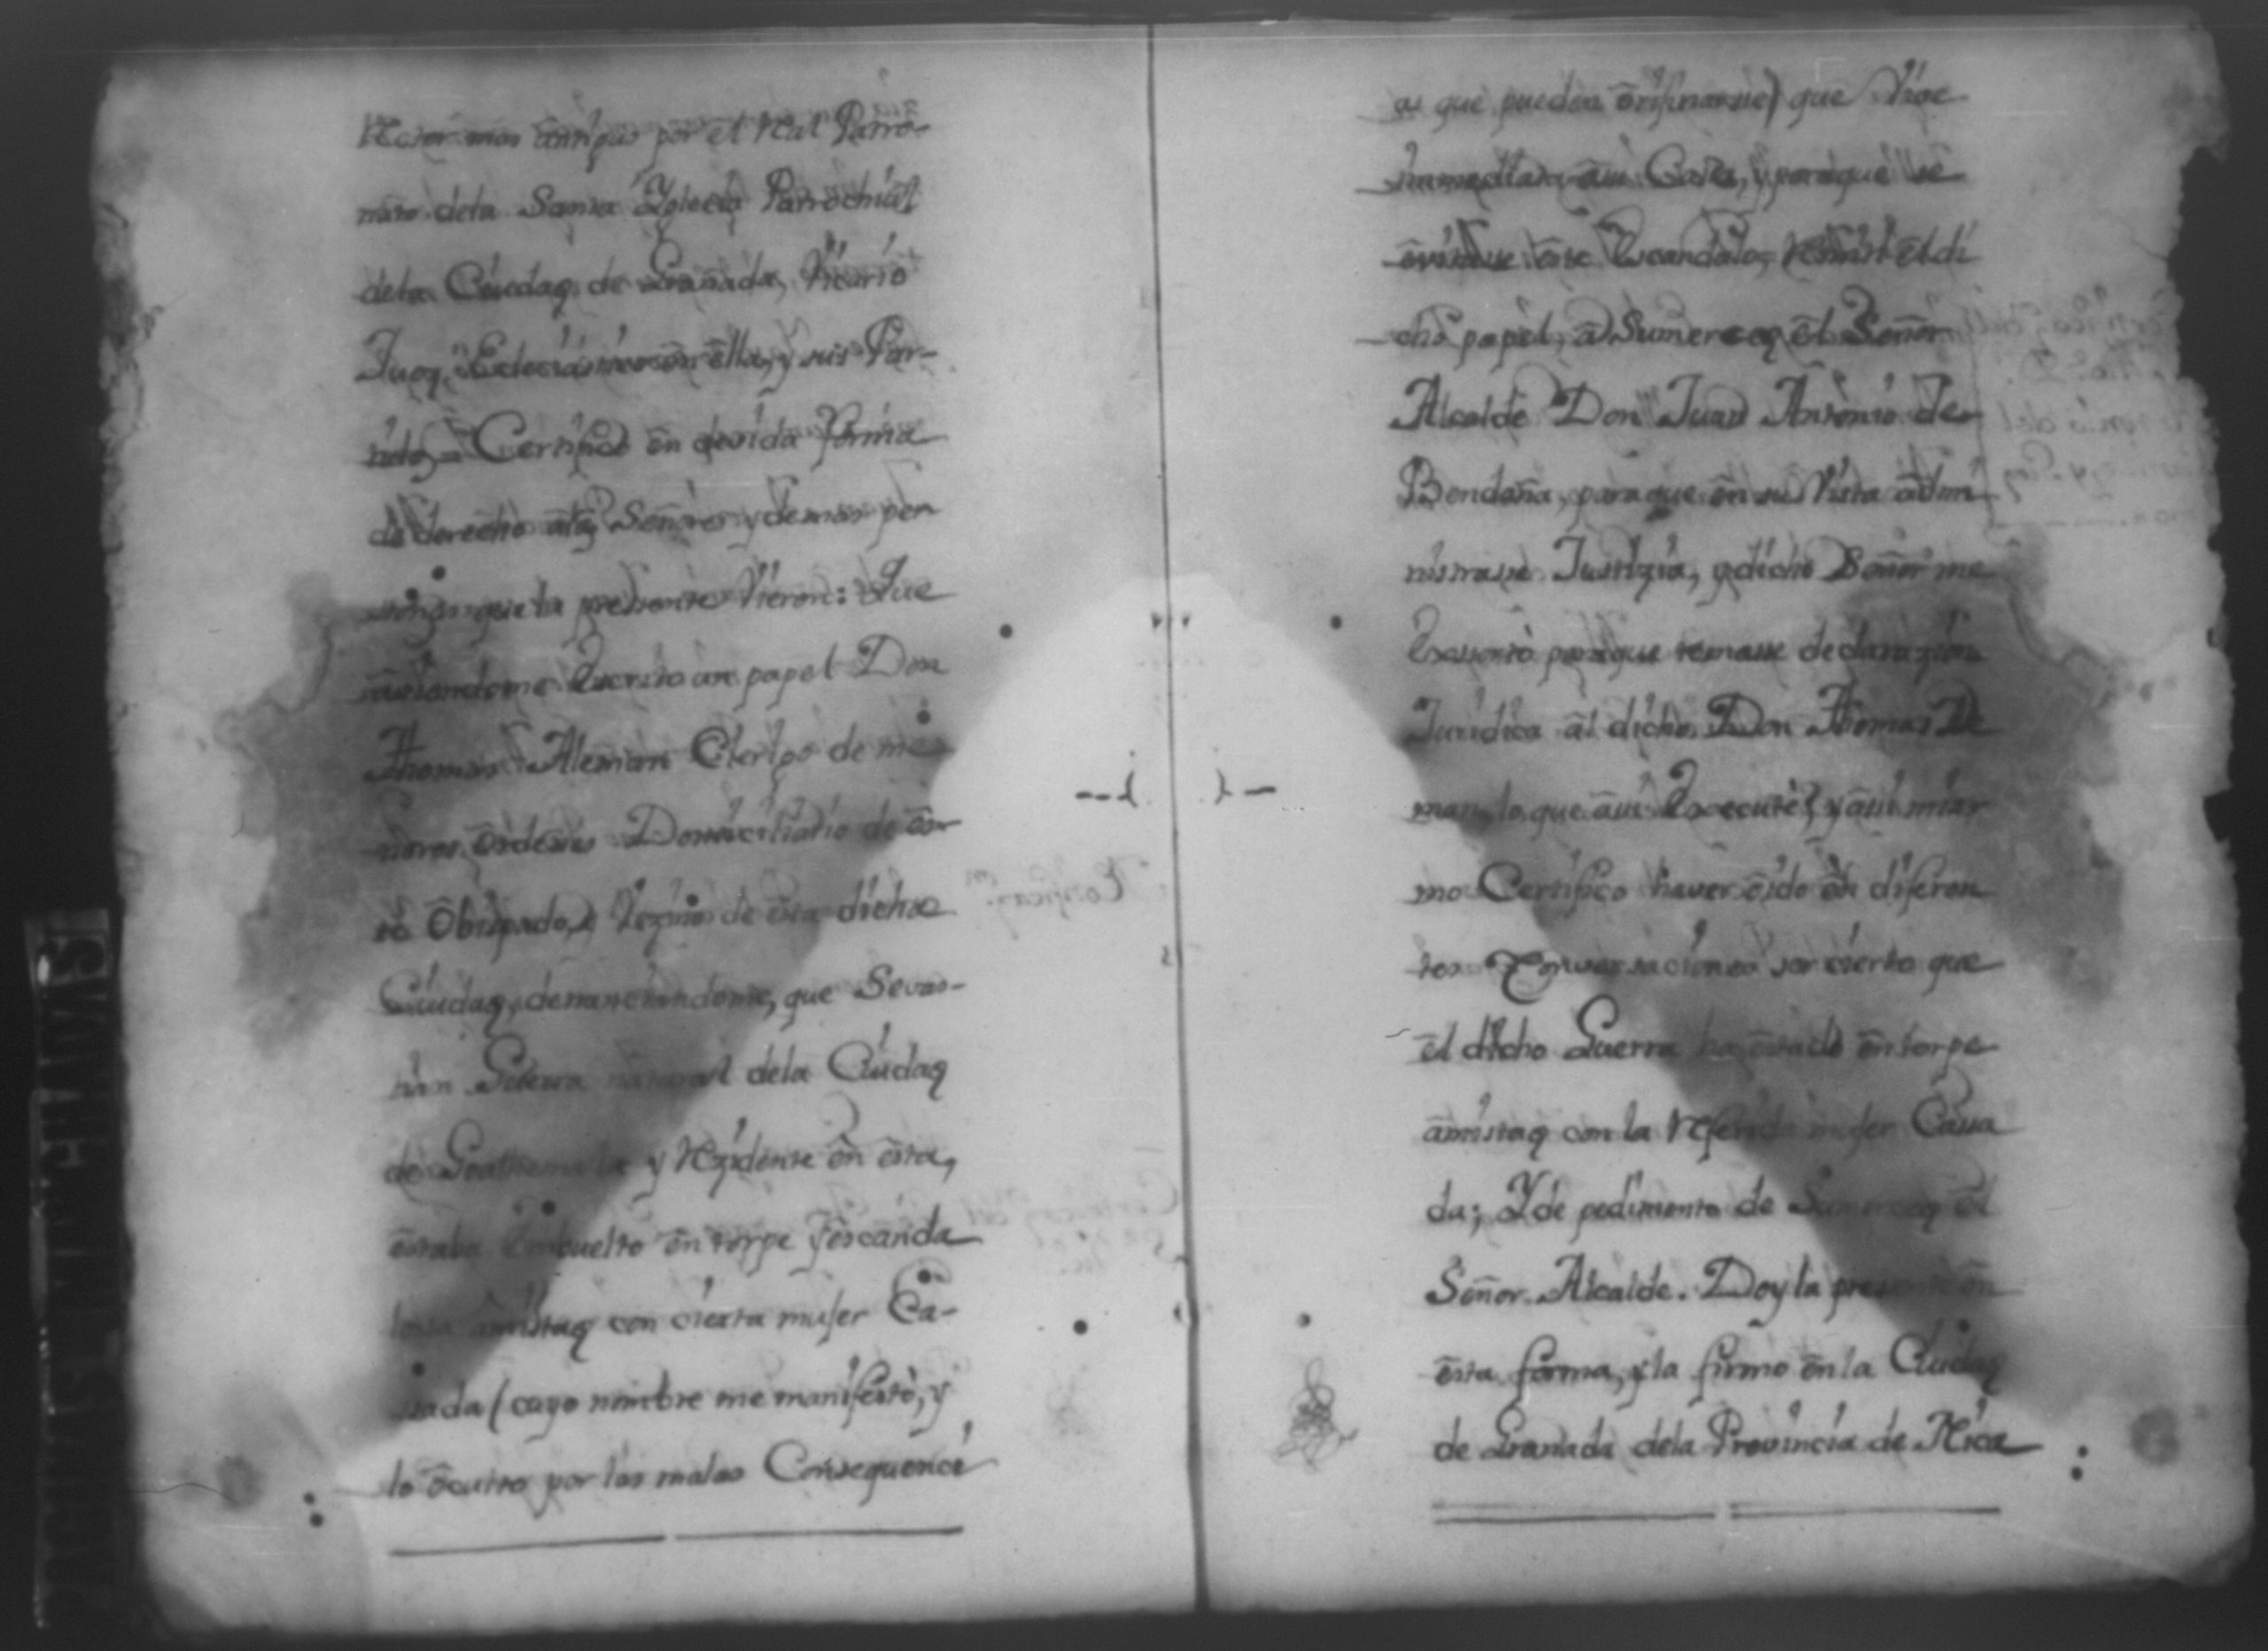 Rector mas antiguo por el Real Patro-
nato dela Santa Yglecia Parrochial
dela Ciudaq de Granada, Vicario
Jueq, Eclesiastico en ella, y sus Par-
Certifico en devida forma
de derecho Señores y demas per
que la presente Vieron: Que
aviendome Escrito un papel Don
Thomas Aleman Clerigo de me
nores Ordenes Domiciliario de es-
te Obispado, y Vezino de esta dicha
Ciudaq, denunciandome, que Sevas-
tian Guerra natural dela Ciudaq
de Goathemala y Rezidente en esta,
estaba Embuelto en torpe y escanda
losa amistaq con cierta mujer Ca-
sada (cuyo nombre me manifestò, y
lo oculto por las malas Consequenci
as que pueden orijinarse) que Vive
inmediata a su Casa, y paraque se
evitasse este Escandalo, el di
cho papel, a Sumerceq el Señor
Alcalde Don Juan Antonio de
Bendaña, paraque en su Vista admi
nistrasse Justizia, y dicho Señor me
Exsortò paraque tomasse declarazion
Juridica al dicho Don Thomas Ale
man, lo que assi Executè; y assi mis
mo Certifico haver oido en diferen
tes Conversaciones ser cierto que
el dicho Guerra ha estado en torpe
amistaq con la Referida mujer Casa
da; Y de pedimento de Sumerceq el
Señor Alcalde. Doy la presente en
esta forma, y la firmo en la Ciudaq
de Granada dela Provincia de Nica